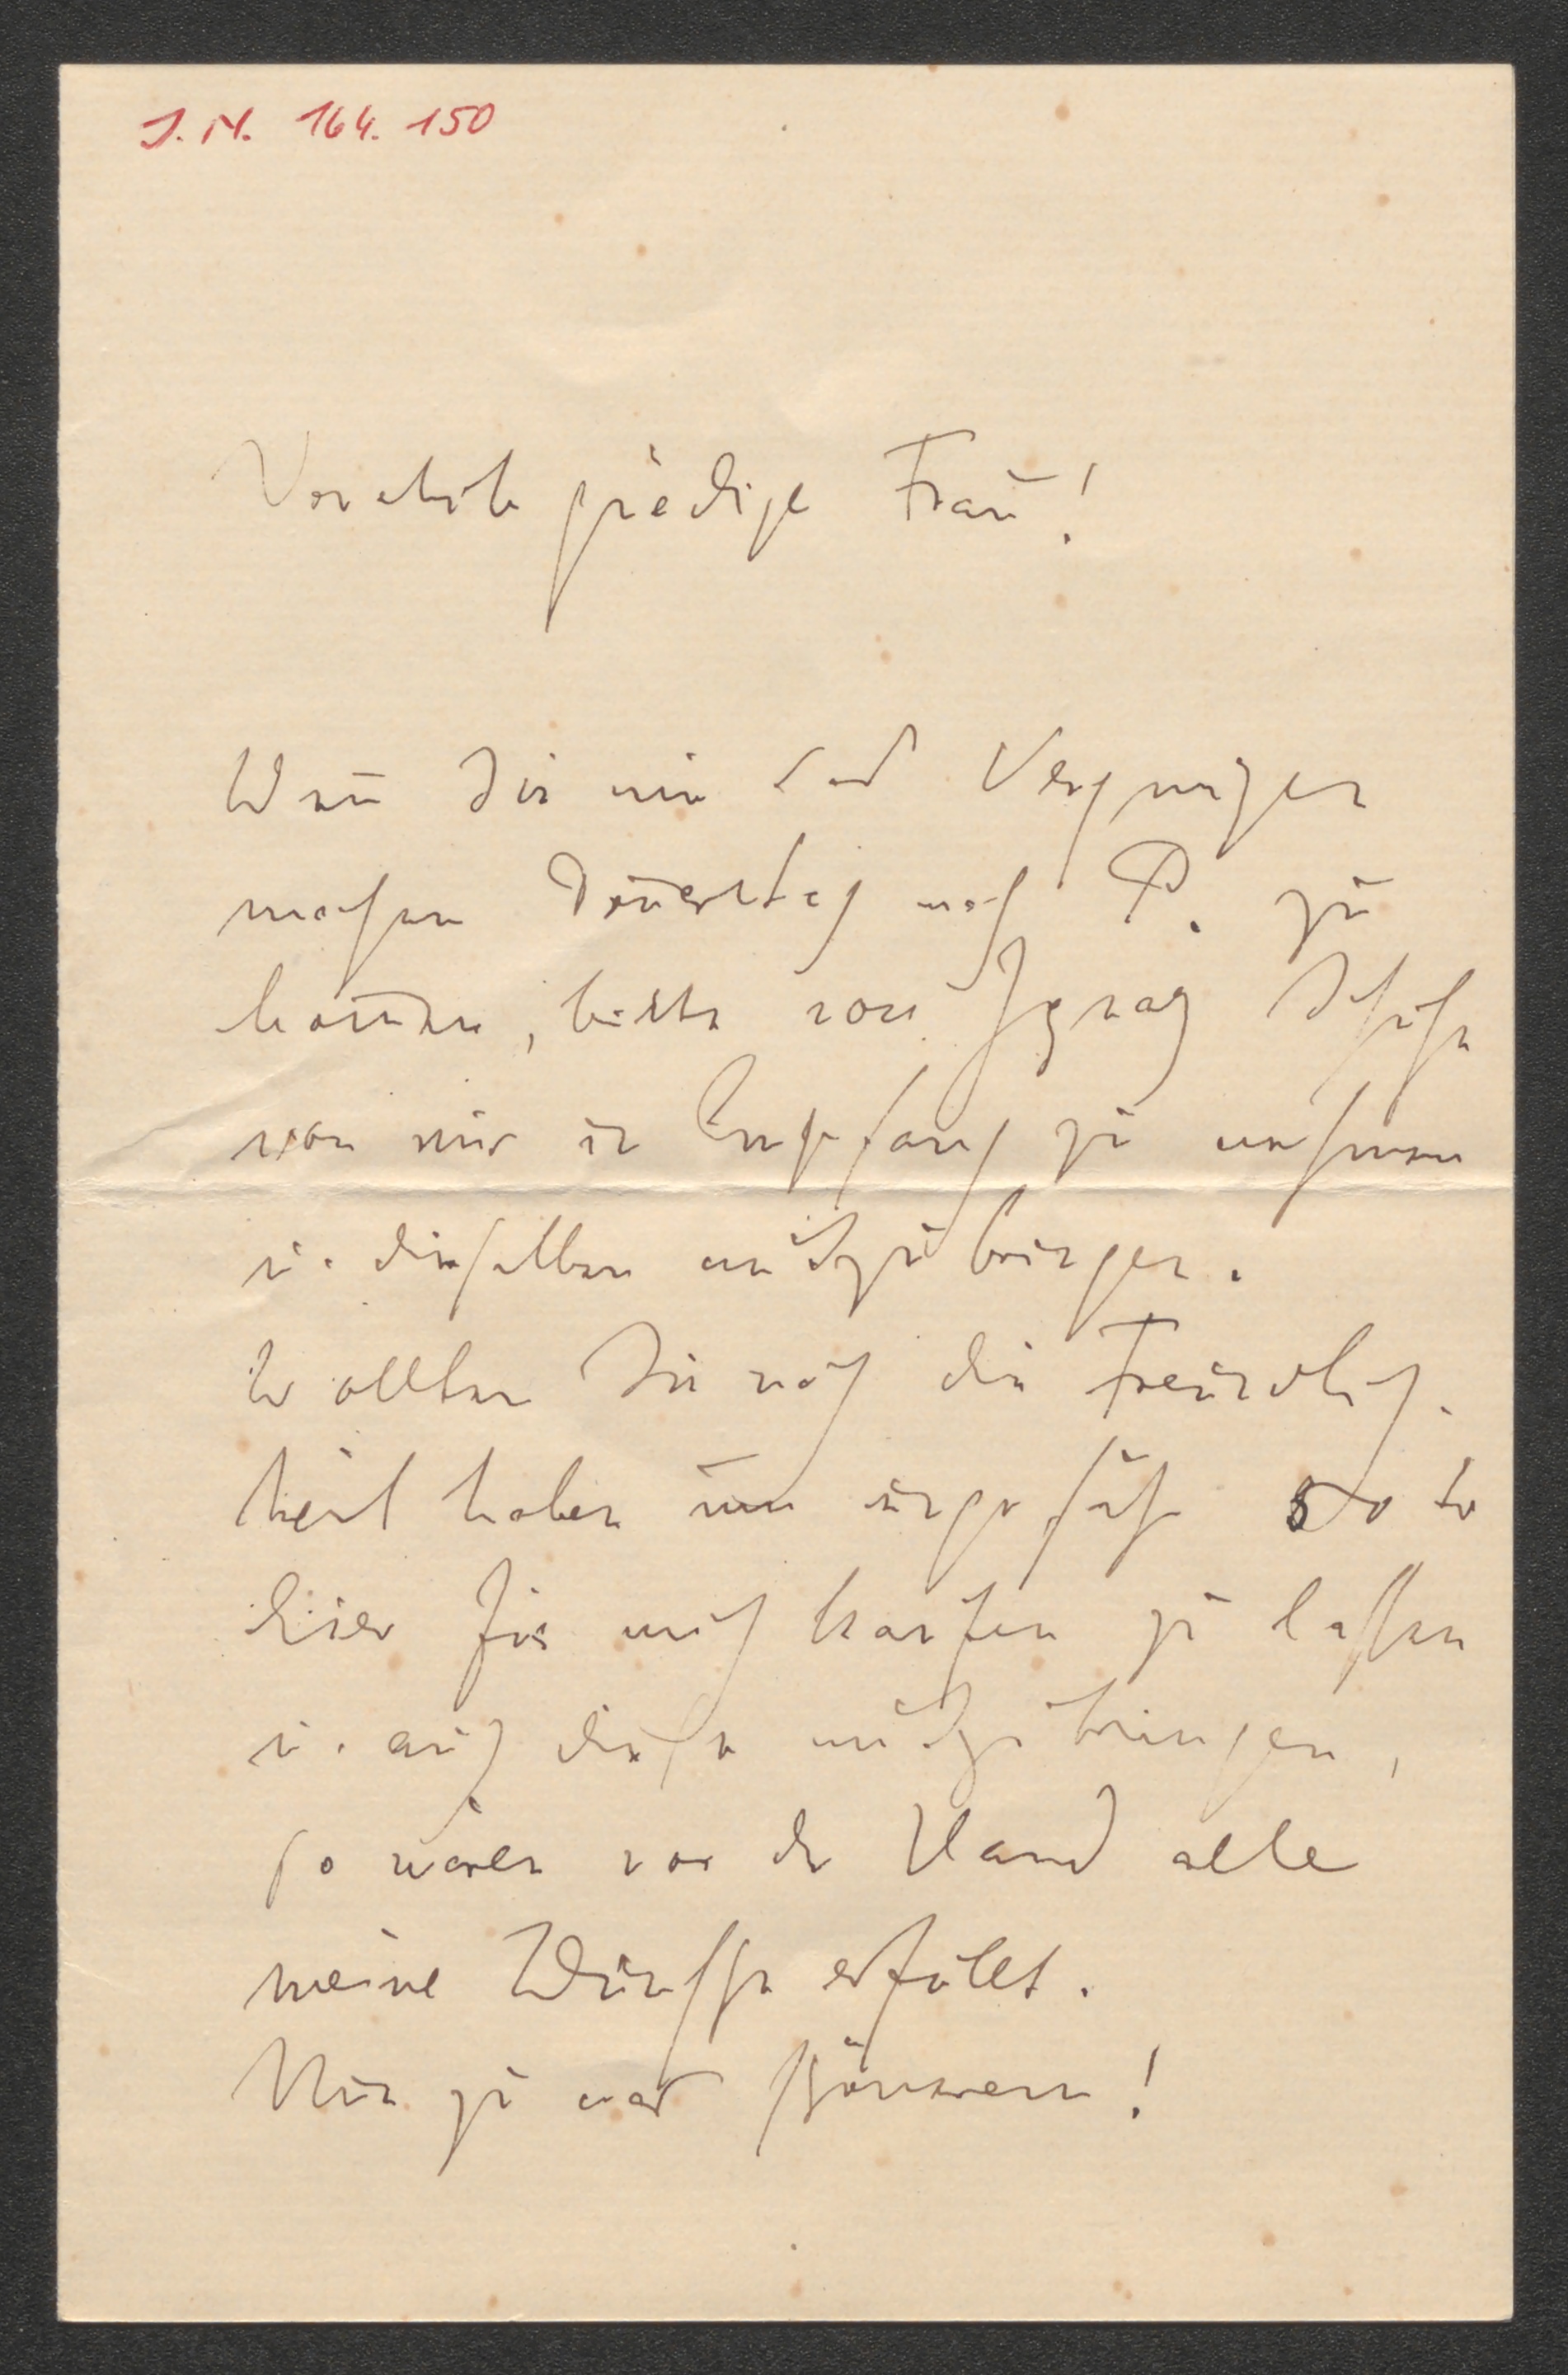 J. N. 164. 150
Verehrte gnädige Frau!
Wenn Sie mir das Vergnügen
machen Donnerstag nach P. zu
kommen, bitte von Ignaz Schuhe
von mir in Empfang zu nehmen
u. dieselben mitzubringen.
Wollten Sie noch die Freundlich-
keit haben um ungefähr 50 kr
hier für mich kaufen zu lassen
u. auch diese mitzubringen,
so wären vor der Hand alle
meine Wünsche erfüllt.
Nun zu was schönerem!